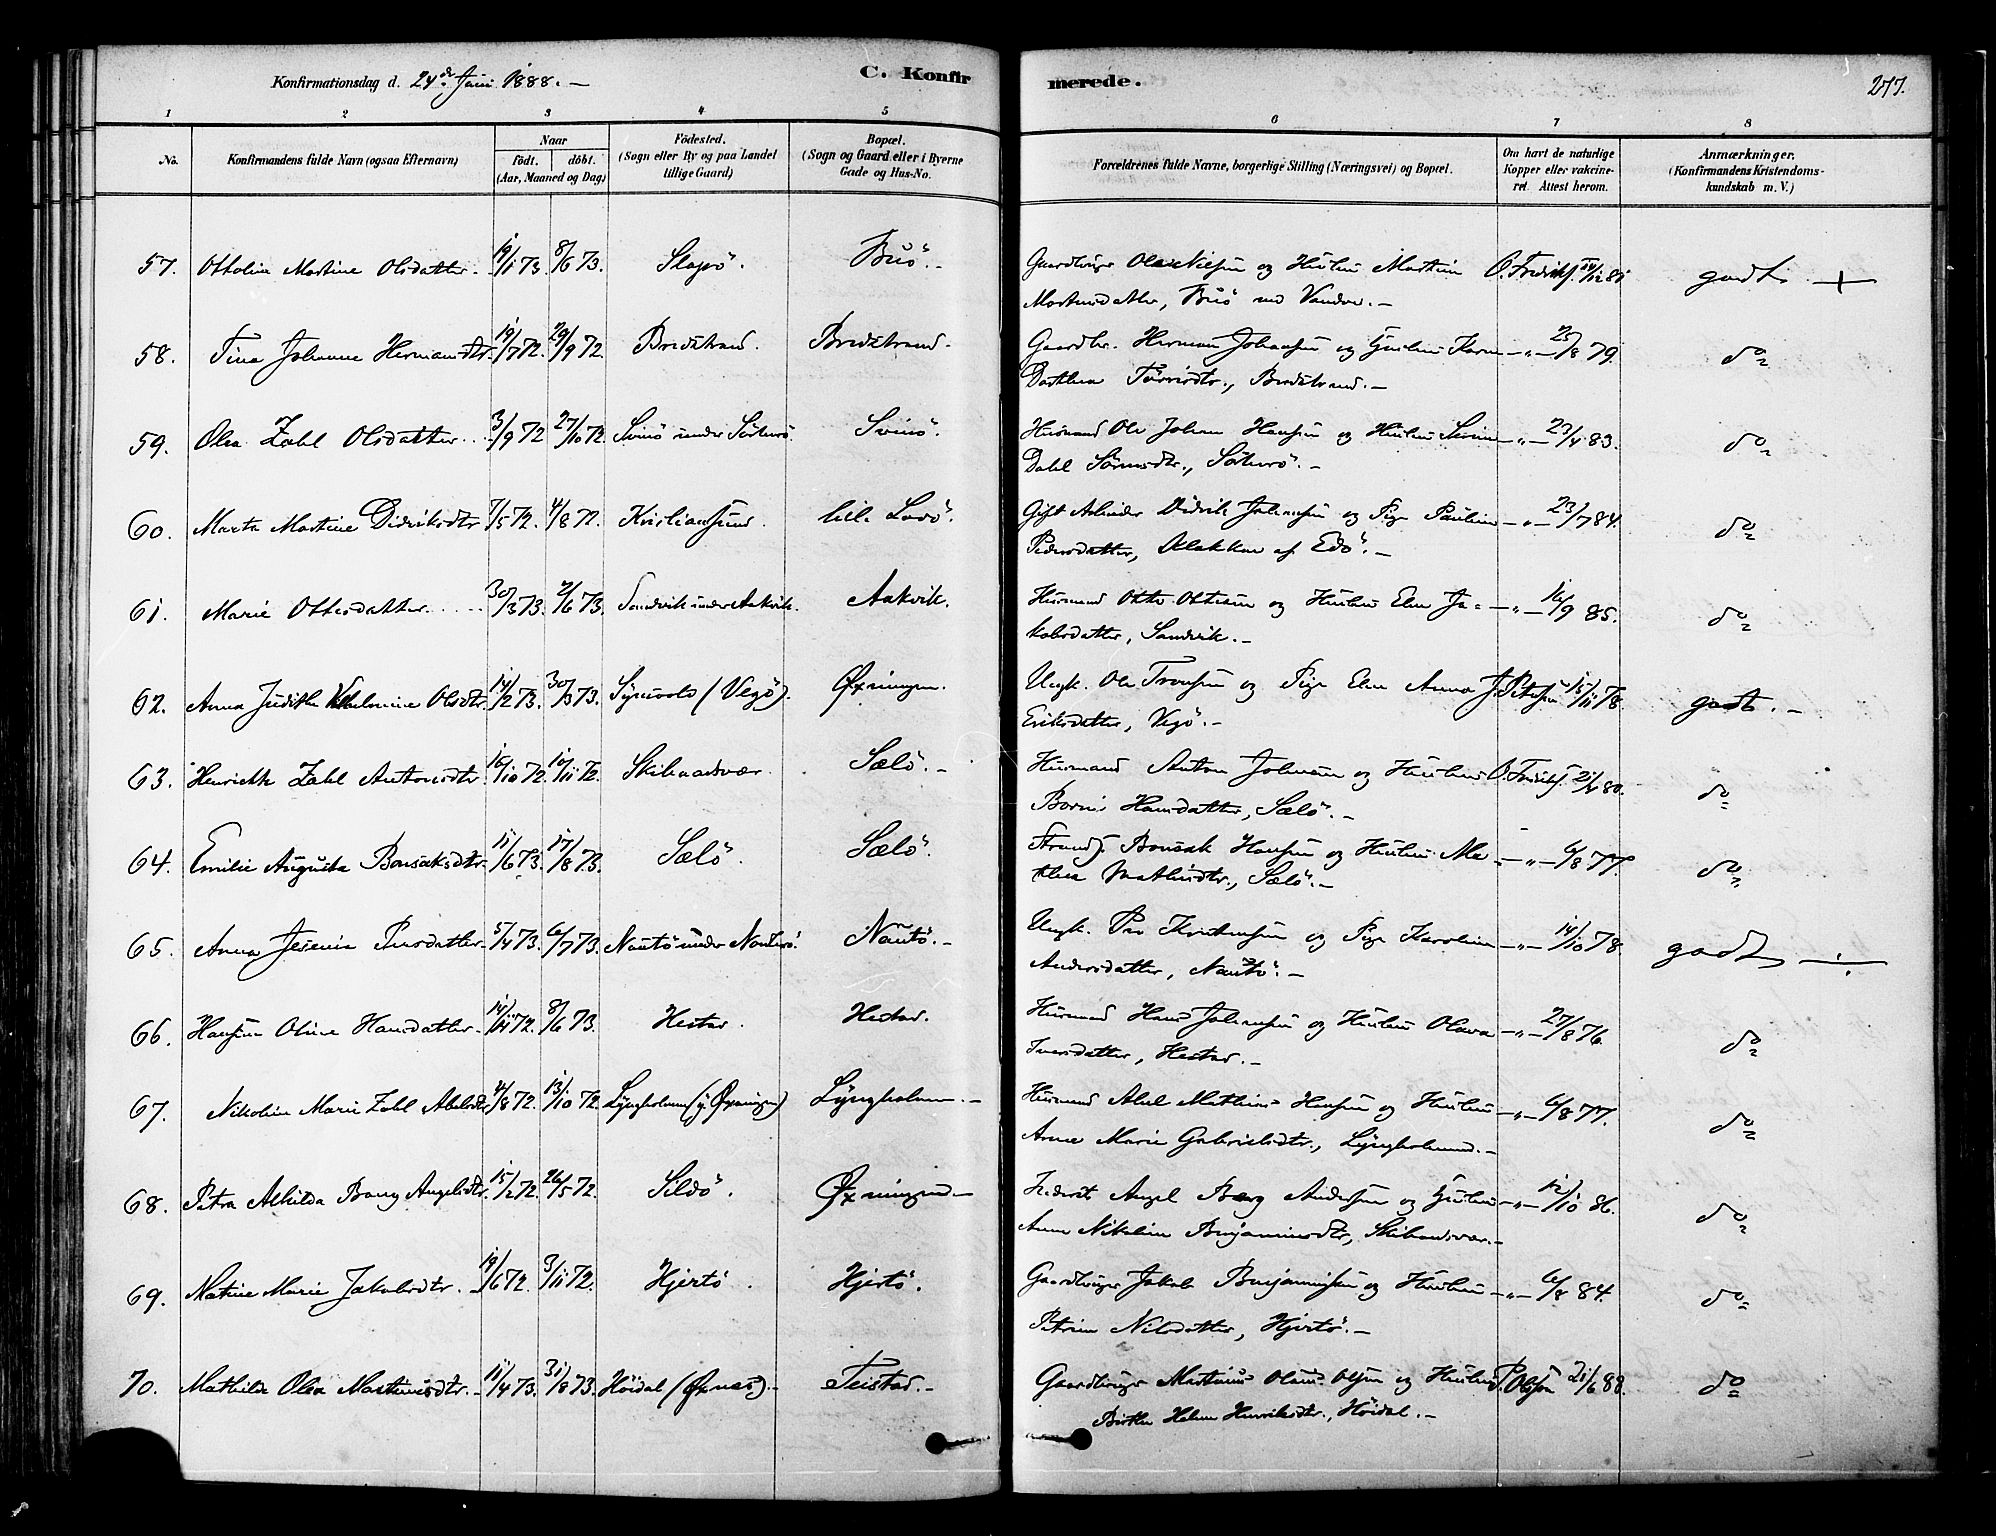 Konfirmationsdag d. 24de Juni 1888. —
C. Konfirmerede.
277.
1 2 3 4 5 6 7 8
No.
Konfirmandens fulde Navn (ogsaa Efternavn)
Naar
födt. döbt.
(Aar, Maaned og Dag)
Födested.
(Sogn eller By og paa Landet
tillige Gaard)
Bopæl.
(Sogn og Gaard eller i Byerne
Gade og Hus-No.
Forældrenes fulde Navne, borgerlige Stilling (Næringsvei) og Bopæl.
Om havt de naturlige
Kopper eller vakcine-
ret. Attest herom.
Anmærkninger.
(Konfirmandens Kristendoms-
kundskab m. V.)
57. Ottoline Martine Olsdatter. 19/1 73. 8/6 73. Slapö. Buö. Gaardbruger Ole Nielsen og Hustru Martine O. Fredriks. 81 godt. +
Mortensdatter, Buö ved Vandve. —
58. Tina Johanne Hermansdtr. 19/7 72. 29/9 72. Bredstrand. Bredstrand. Gaardbr. Herman Johansen og Hustru Karen — " — 25/8 79. do
Dorthea Törrisdtr., Bredstrand. —
59. Olea Zahl Olsdatter. 3/9 72 27/10 72. Svinö under Sörherö. Svinö. Husmand Ole Johan Hansen og Hustru — " — 23/4 83. do
Dahl Sörensdtr., Sörherö. —
60. Marta Martine Didriksdtr. 7/5 72. 4/8 72. Kristiansund. lill. Lovö. Gift Arbeider Didrik Johansen og Pige Pauline — " — 23/7 84. do
Pedersdatter, Klakken af Edö. —
61. Marie Ottesdatter. 30/3 73. 2/6 73. Sandvik under Aakvik. Aakvik. Husmand Otte Ottesen og Hustru Elen Ja- — " — 16/9 85. do
kobsdatter, Sandvik. —
62. Anna Judithe Vilhelmine Olsdtr. 14/2 73. 30/3 73. (Vegö). Øxningen. Ungk. Ole Tronsen og Pige Elen Anna J. Petersen 15/11 78. godt. —
Eriksdatter, Vegö. —
63. Henrikke Zahl Antonsdtr. 16/10 72. 10/11 72. Skibaadsvær. Sælö. — Husmand Anton Johnsen og Hustru O. Fredriks. 21/4 80. do
Hansdatter, Sælö. —
64. Emilie Augusta Bonsaksdtr. 11/6 73. 17/8 73. Sælö. Sælö. Strands. Bonsak Hansen og Hustru Ma- — " — 6/8 77. do
thea Mathisdtr., Sælö. —
65. Anna Jesenia Persdatter. 5/4 73. 6/7 73. Nautö under Nordherö. Nautö. — Ungk. Per Kristensen og Pige Karoline — " — 14/10 78. godt —
Andersdatter, Nautö. —
66. Hansine Oline Hansdatter. 14/11 72. 8/6 73. Hestad. Hestad. Husmand Hans Johansen og Hustru Olava — " — 27/8 76. do
Iversdatter, Hestad. —
67. Nikoline Marie Zahl Abelsdtr. 4/8 72. 13/10 72. Lyngholmen (y. Øxningen) Lyngholmen. — Husmand Abel Mathias Hansen og Hustru — " — 6/8 77. do
Anne Marie Gabrielsdtr., Lyngholmen. —
68. Petra Alhilda Bang Angelsdtr. 15/2 72. 26/5 72. Sildö. Øxningen. — Inderst Angel Berg Andersen og Hustru — " — 12/10 86. do
Anne Nikoline Benjaminsdtr., Skibaadsvær. —
69. Matine Marie Jakobsdtr. 19/6 72. 3/11 72. Hjertö. Hjertö. Gaardbruger Jakob Benjaminsen og Hustru — " — 6/8 84. do
Petrine Nilsdatter, Hjertö. —
70. Mathilde Olea Martinusdtr. 11/4 73. 31/8 73. Höidal (Øxnes). — Teistad. — Gaardbruger Martinus Olaus Olsen og Hustru P. Olsen 21/6 88. do
Birthe Helene Henriksdtr., Höidal. —